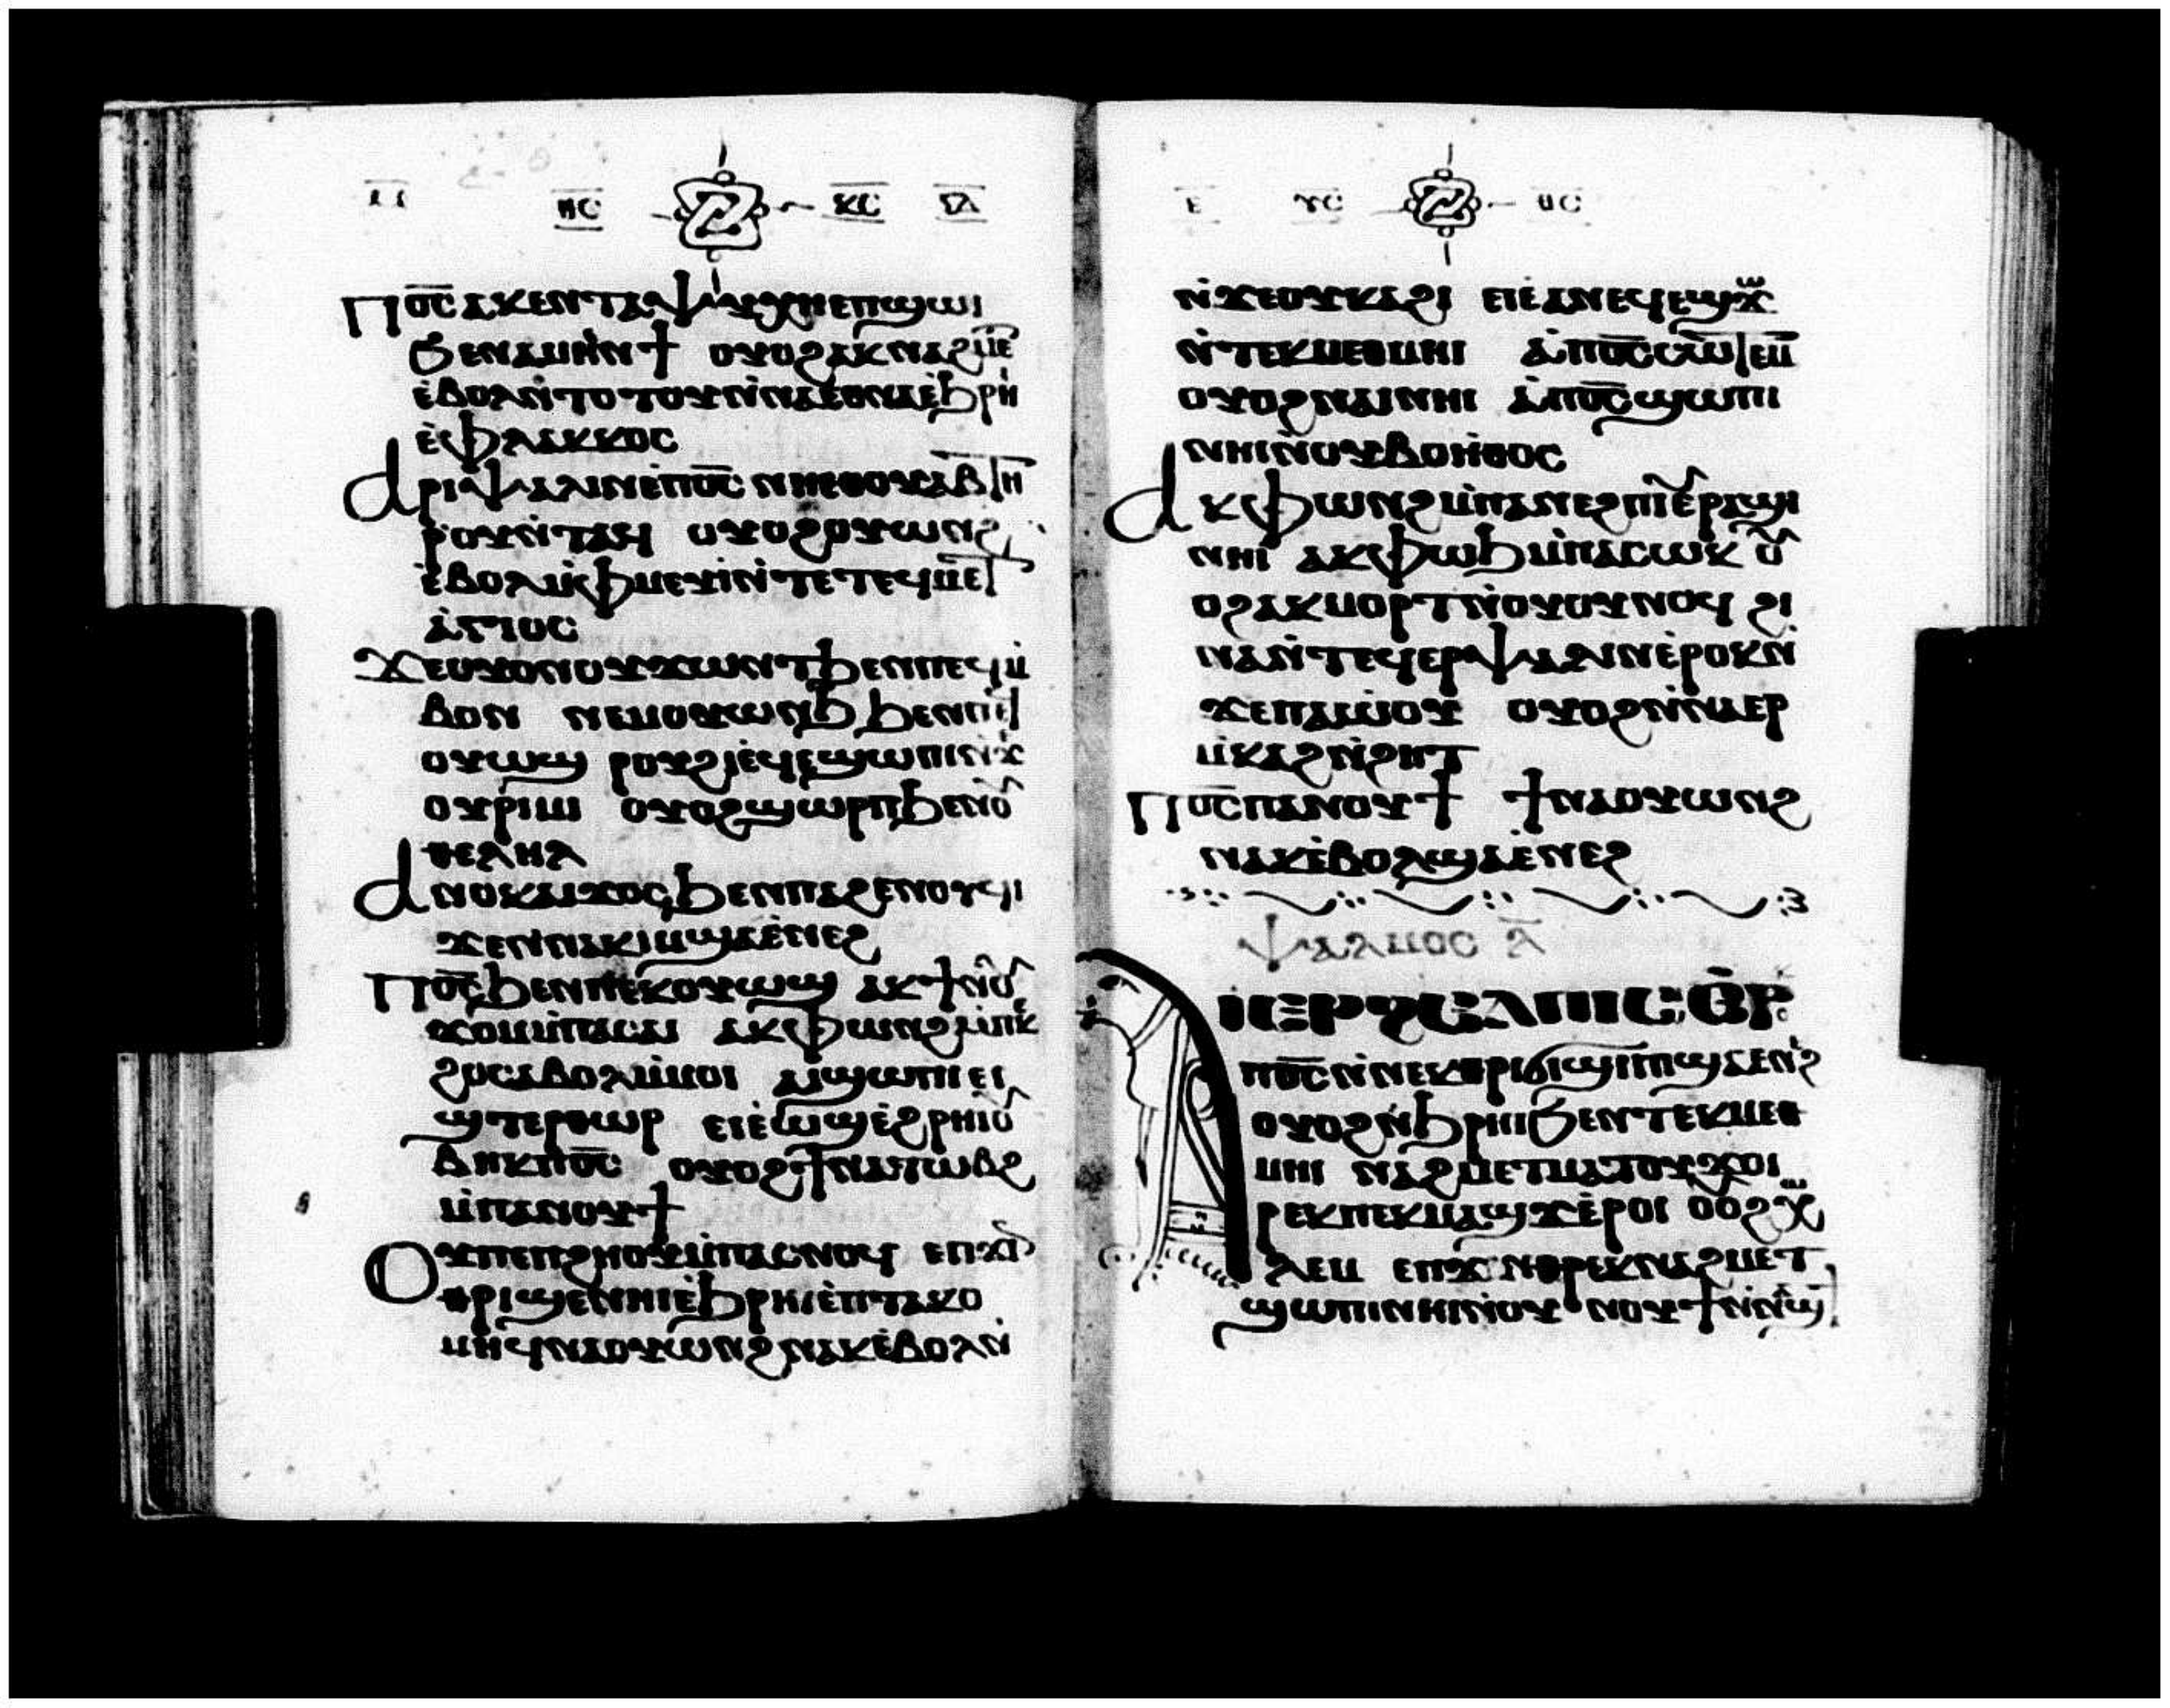 ⲓ̅ⲥ̅ ⲭ̅ⲥ̅
Ⲡⲟ̅ⲥ̅ ⲁⲕⲉⲛⲧⲁⲯⲩⲭⲏⲉⲡϣⲱⲓ
ϧⲉⲛⲁⲙⲏⲛϯ ⲟⲩⲟϩⲁⲕⲛⲁϩⲙⲉ
ⲉ̇ⲃⲟⲗⲛ̇ⲧⲟⲧⲟⲩⲛ̇ⲛⲏⲉⲑⲛⲁⲉ̇ϧⲣⲏ
ⲉ̇ⲫⲗⲁⲕⲕⲟⲥ
Ⲁⲣⲓⲯⲁⲗⲓⲛⲉ̇ⲡⲟ̅ⲥ̅ ⲛⲏⲉⲑⲟⲩⲁ̅ⲃ̅ ⲧⲏ
ⲣⲟⲩⲛ̇ⲧⲁϥ ⲟⲩⲟϩⲟⲩⲱⲛϩ
ⲉ̇ⲃⲟⲗⲙ̇ⲫⲙⲉⲩⲓ̇ⲛ̇ⲧⲉⲧⲉϥⲙⲉⲧ
ⲁ̇ⲅⲓⲟⲥ
Ϫⲉⲟⲩⲟⲛⲟⲩϫⲱⲛⲧϧⲉⲛⲡⲉϥⲙ̇
ⲃⲟⲛ ⲛⲉⲙⲟⲩⲱⲛϧ ϧⲉⲛⲡⲉϥ
ⲟⲩⲱϣ ⲣⲟⲩϩⲓⲉ̇ϥⲉ̇ϣⲱⲡⲓⲛ̇ϫⲉ
ⲟⲩⲣⲓⲙⲓ ⲟⲩⲟϩϣⲱⲣⲡϧⲉⲛⲟⲩ
ⲑⲉⲗⲏⲗ
Ⲁⲛⲟⲕⲁⲓϫⲟⲥϧⲉⲛⲡⲁϩⲉⲛⲟⲩϥⲓ
ϫⲉⲛⲛⲁⲕⲓⲙϣⲁⲉ̇ⲛⲉϩ
Ⲡⲟ̅ⲥ̅ϧⲉⲛⲡⲉⲕⲟⲩⲱϣ ⲁⲕϯⲛⲟⲩ
ϫⲟⲙⲙ̇ⲡⲁⲥⲁⲓ ⲁⲕⲫⲱⲛϩⲙ̇ⲡⲉⲕ
ϩⲟⲥⲁⲃⲟⲗⲙ̇ⲙⲟⲓ ⲁⲓϣⲱⲡⲓⲉⲓ
ϣⲧⲉⲣⲑⲱⲣ ⲉⲓⲉ̇ⲱϣⲉ̇ϩⲣⲏⲓⲟⲩ
ⲃⲏⲕⲡⲟ̅ⲥ̅ ⲟⲩⲟϩϯⲛⲁⲧⲱⲃϩ
ⲙ̇ⲡⲁⲛⲟⲩϯ
Ⲟⲩⲡⲉⲡϩⲏⲟⲩⲙ̇ⲡⲁⲥⲛⲟϥ ⲉⲡϫⲓⲛ
ⲑⲣⲓϣⲉⲛⲏⲓⲉ̇ϧⲣⲏⲓⲉ̇ⲡⲧⲁⲕⲟ
ⲙⲏϥⲛⲁⲟⲩⲱⲛϩⲛⲁⲕⲉ̇ⲃⲟⲗⲛ̇
ⲩ̅ⲥ̅ ⲑ̅ⲥ̅
ⲛ̇ϫⲉⲟⲩⲕⲁϩⲓ ⲉⲓⲉⲁⲛⲉϥⲉϣϫⲱ
ⲛ̇ⲧⲉⲕⲙⲉⲑⲙⲏⲓ ⲁ̇ⲡⲟ̅ⲥ̅ⲥⲱⲧⲉⲙ
ⲟⲩⲟϩⲛⲁⲓⲛⲏⲓ ⲁ̇ⲡⲟ̅ⲥ̅ϣⲱⲡⲓ
ⲛⲏⲓⲛ̇ⲟⲩⲃⲟⲏ̇ⲑⲟⲥ
Ⲁⲕⲫⲱⲛϩⲙ̇ⲡⲁⲛⲉϩⲡⲓⲉ̇ⲣⲁϣⲓ
ⲛⲏⲓ ⲁⲕⲫⲱϧⲙ̇ⲡⲁⲥⲱⲕ ⲟⲩ
ⲟϩⲁⲕⲙⲟⲣⲧⲛ̇ⲟⲩⲟⲩⲛⲟϥ ϩⲓ
ⲛⲁⲛ̇ⲧⲉϥⲉⲣⲯⲁⲗⲓⲛⲉ̇ⲣⲟⲕⲛ̇
ϫⲉⲡⲁⲱ̇ⲟⲩ ⲟⲩⲟϩⲛ̇ⲛⲁⲉⲣ
ⲙ̇ⲕⲁϩⲛ̇ϩⲏⲧ
Ⲡⲟ̅ⲥ̅ⲡⲁⲛⲟⲩϯ ϯⲛⲁⲟⲩⲱⲛϩ
ⲛⲁⲕⲉ̇ⲃⲟⲗϣⲁⲉ̇ⲛⲉϩ
ⲯⲁⲗⲙⲟⲥ ⲗ̅
ⲁⲓⲉⲣϩⲉⲗⲡⲓⲥ ⲉ̇ⲣⲟⲕ
ⲡⲟ̅ⲥ̅ⲛ̇ⲛⲉⲕⲑⲣⲓϭⲓϣⲓⲡⲓϣⲁⲉⲛⲉϩ
ⲟⲩⲟϩⲛ̇ϧⲣⲏⲓϧⲉⲛⲧⲉⲕⲙⲉⲑ
ⲙⲏⲓ ⲛⲁϩⲙⲉⲧⲙⲁⲧⲟⲩϫⲟⲓ
ⲣⲉⲕⲡⲉⲕⲙⲁϣϫⲉ̇ⲣⲟⲓ ⲟⲩⲟϩⲭⲱ
ⲗⲉⲙ ⲉⲡϫⲓⲛⲑⲣⲉⲕⲛⲁϩⲙⲉⲧ
ϣⲱⲡⲓⲛⲏⲓⲛ̇ⲟⲩⲛⲟⲩϯⲛ̇ⲛⲁϣ